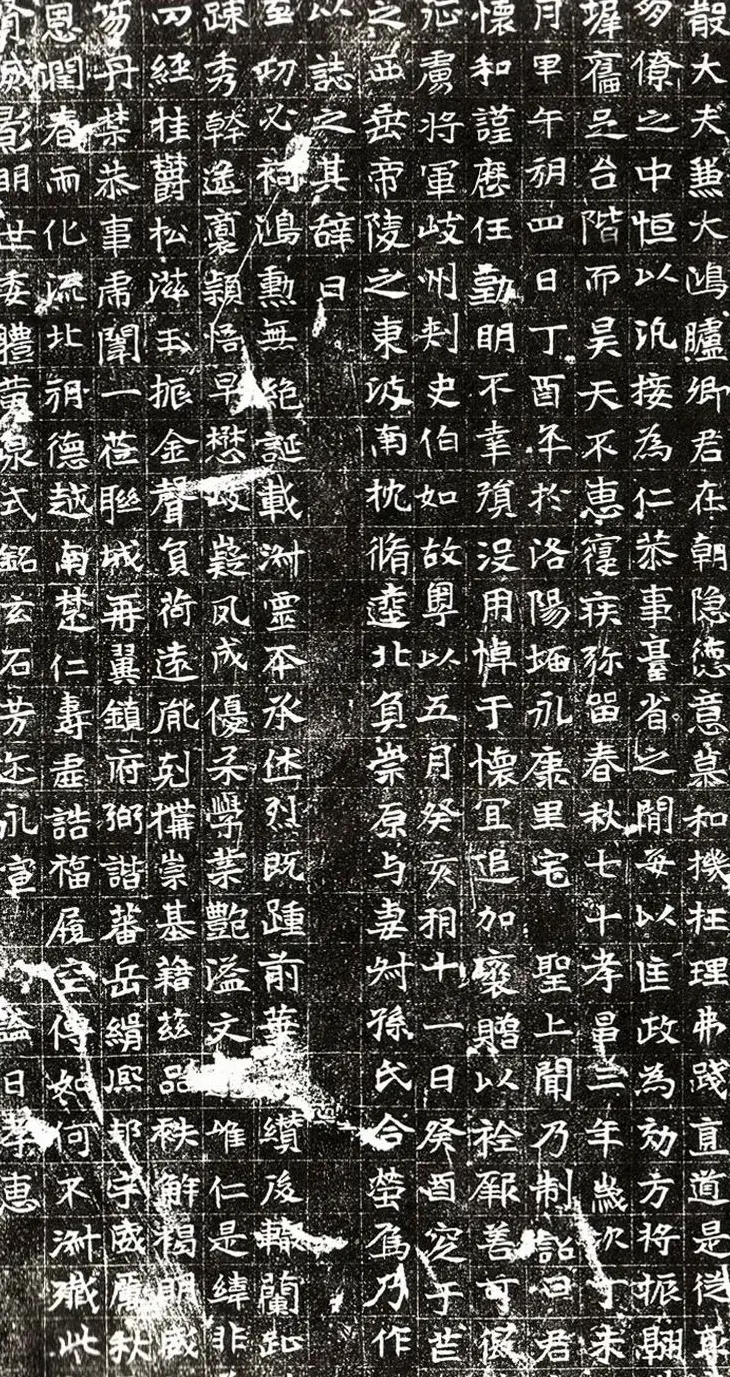 散大夫兼大鴻臚卿君在朝隱德意慕和機枉理弗踐直道是從聿
僚之中恒以汎接為仁恭事臺省之間每以匡政為効方將振翮
墀奮足台階而昊天不惠寢疾弥留春秋七十孝昌三年歲次丁未
月甲午朔四日丁酉卒於洛陽城永康里宅聖上聞乃制詔曰君
懷和謹歷任勤明不幸殞没用悼于懷宜追加褒贈以袨厥善可假
征虜將軍岐州刺史伯如故粤以五月癸亥朔十一日癸酉窆于芒
之西垂帝陵之東坡南枕脩逵北負崇原与妻尉孫氏合塋焉乃作
以誌之其辞曰
至功必裔鴻勳無絶誕載淵靈本承休烈既踵前華纘後轍蘭起
疎秀幹遥裏穎悟早懋岐嶷夙成優柔學業艷溢文唯仁是緯非
四經桂欝松滋玉振金聲負荷遠胤剋構崇基籍兹品秩解褐明威
笏丹禁恭事肅闈一莅聯城再翼鎮府弼諧蕃岳緝熙邦宇威厲秋
恩潤春而化流北朔德越南楚仁壽虛誥福履空傳如何不淑殲此
明世委體黄泉式銘玄石芳迹永宣